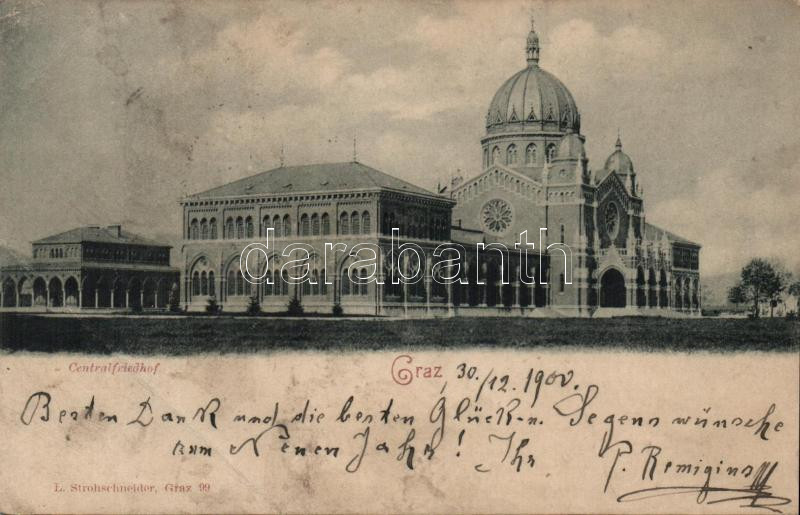 darabanth
Centralfriedhof
Graz 30./12. 1900.
Besten Dank und die besten Glück- u. Segenswünsche
zum Neuen Jahr! Ihr
P. Remigius
L. Strohschneider, Graz 99